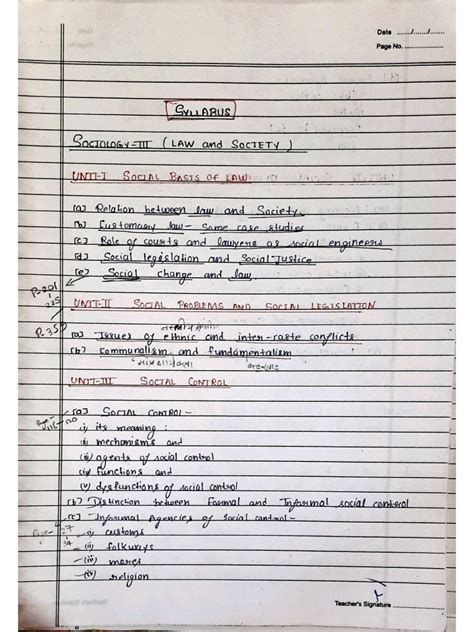 Date ....../......./.......
Page No. ..................
SYLLABUS
SOCIOLOGY-III ( LAW and SOCIETY )
UNIT-I SOCIAL BASIS OF LAW
(a) Relation between law and Society.
(b) Customary law - Some case studies
(c) Role of courts and lawyers as social engineers
(d) Social legislation and Social Justice
(e) Social change and law.
P-201
225
UNIT-II SOCIAL PROBLEMS AND SOCIAL LEGISLATION
P.35
(a) Issues of ethnic and inter-caste conflicts
(b) Communalism and fundamentalism
UNIT-III SOCIAL CONTROL
(a) SOCIAL CONTROL -
(i) its meaning :
(ii) mechanisms and
(iii) agents of social control
(iv) functions and
(v) dysfunctions of social control
(b) Distinction between Formal and Informal social control
(c) Informal Agencies of social control -
(i) customs
(ii) folkways
mores
religion
Teacher's Signature ..................